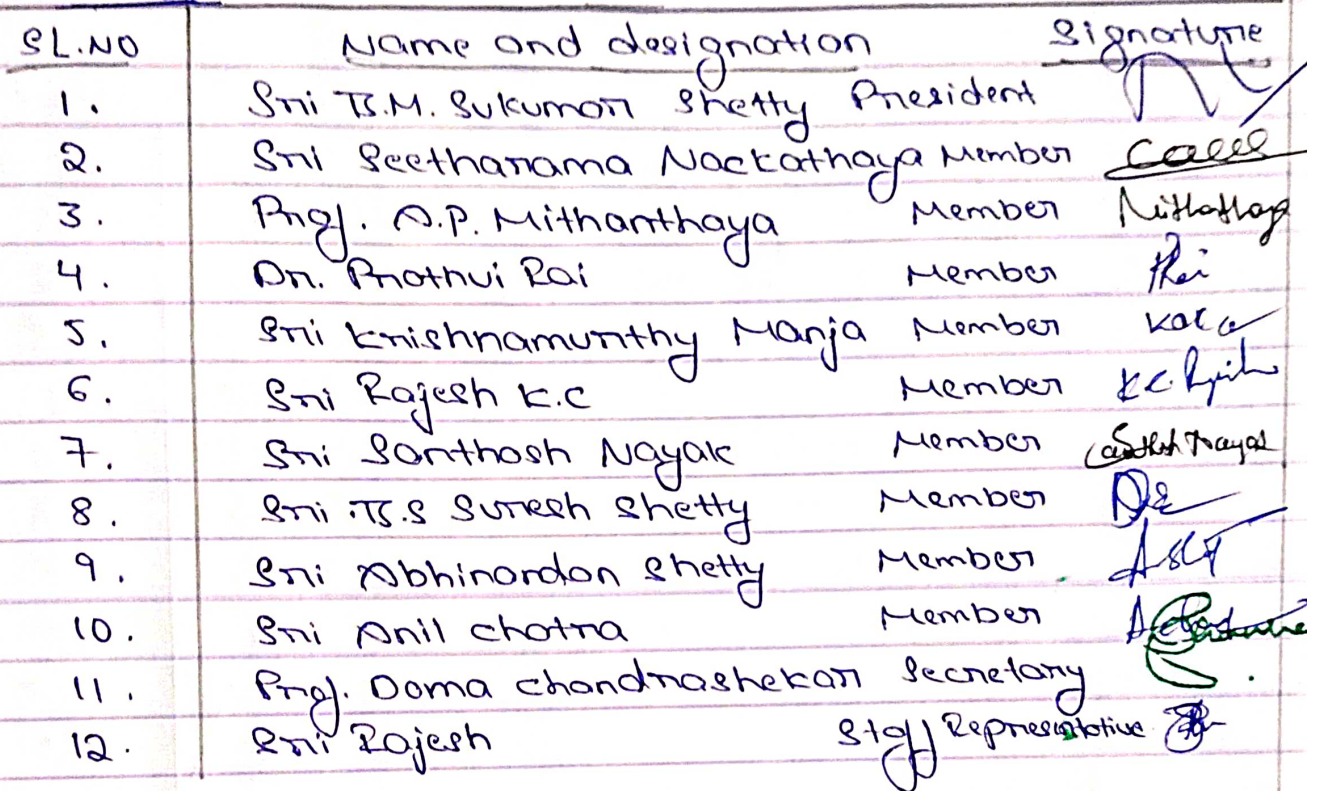 SL.NO Name and designation Signature
1. Sri B.M. Sukumar Shetty President
2. Sri Seetharama Nackathaya Member
3. Prof. A.P. Mithanthaya Member
4. Dr. Prathvi Rai Member Rai
5. Sri Krishnamurthy Manja Member
6. Sri Rajesh K.C Member K.C
7. Sri Santhosh Nayak Member Santhosh Nayak
8. Sri B.S Suresh Shetty Member
9. Sri Abhinandan Shetty Member
10. Sri Anil Chatra Member
11. Prof. Doma Chandrashekar Secretary
12. Sri Rajesh Staff Representative